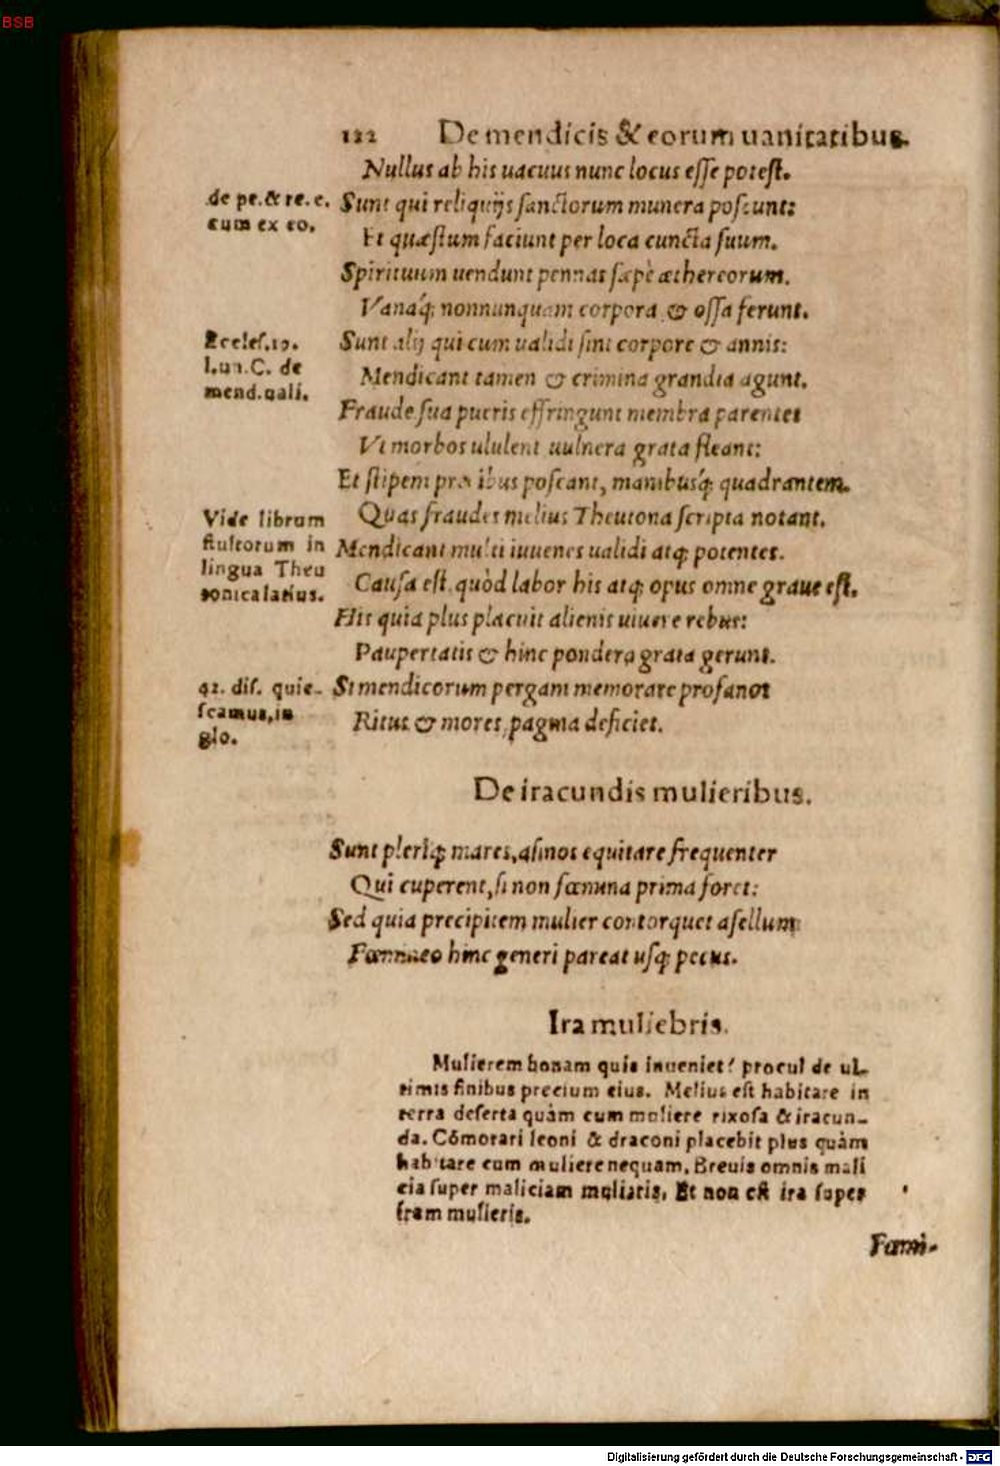 BSB
122 De mendicis & eorum uanitatibus.
Nullus ab his uacuus nunc locus esse potest.
de pe. & re. c.
cum ex eo.
Sunt qui reliquijs sanctorum munera poscunt:
Et quæstum faciunt per loca cuncta suum.
Spirituum uendunt pennas sæpè æthereorum.
Vanaq́; nonnunquam corpora & ossa ferunt.
Eccles.
l. un. C. de
mend. uali.
Sunt alij qui cum ualidi sint corpore & annis:
Mendicant tamen & crimina grandia agunt.
Fraude sua pueris effringunt membra parentes
Vt morbos ululent uulnera grata fleant:
Et stipem precibus poscant, manibusq́; quadrantem.
Quas fraudes melius Theutona scripta notant.
Vide librum
stultorum in
lingua Theu
tonica latius.
Mendicant multi iuuenes ualidi atq; potentes.
Causa est, quòd labor his atq; opus omne graue est.
His quia plus placuit alienis uiuere rebus:
Paupertatis & hinc pondera grata gerunt.
42. dis. quie-
scamus, in
glo.
Si mendicorum pergam memorare profanos
Ritus & mores, pagina deficiet.
De iracundis mulieribus.
Sunt pleriq; mares, asinos equitare frequenter
Qui cuperent, si non fœmina prima foret:
Sed quia precipitem mulier contorquet asellum
Fœmineo hinc generi pareat usq; pecus.
Ira muliebris.
Mulierem bonam quis inueniet? procul de ul-
timis finibus precium eius. Melius est habitare in
terra deserta quàm cum muliere rixosa & iracun-
da. Cōmorari leoni & draconi placebit plus quàm
habitare cum muliere nequam. Breuis omnis mali
cia super maliciam mulieris. Et non est ira super
iram mulieris.
Fœmi-
Digitalisierung gefördert durch die Deutsche Forschungsgemeinschaft - DFG